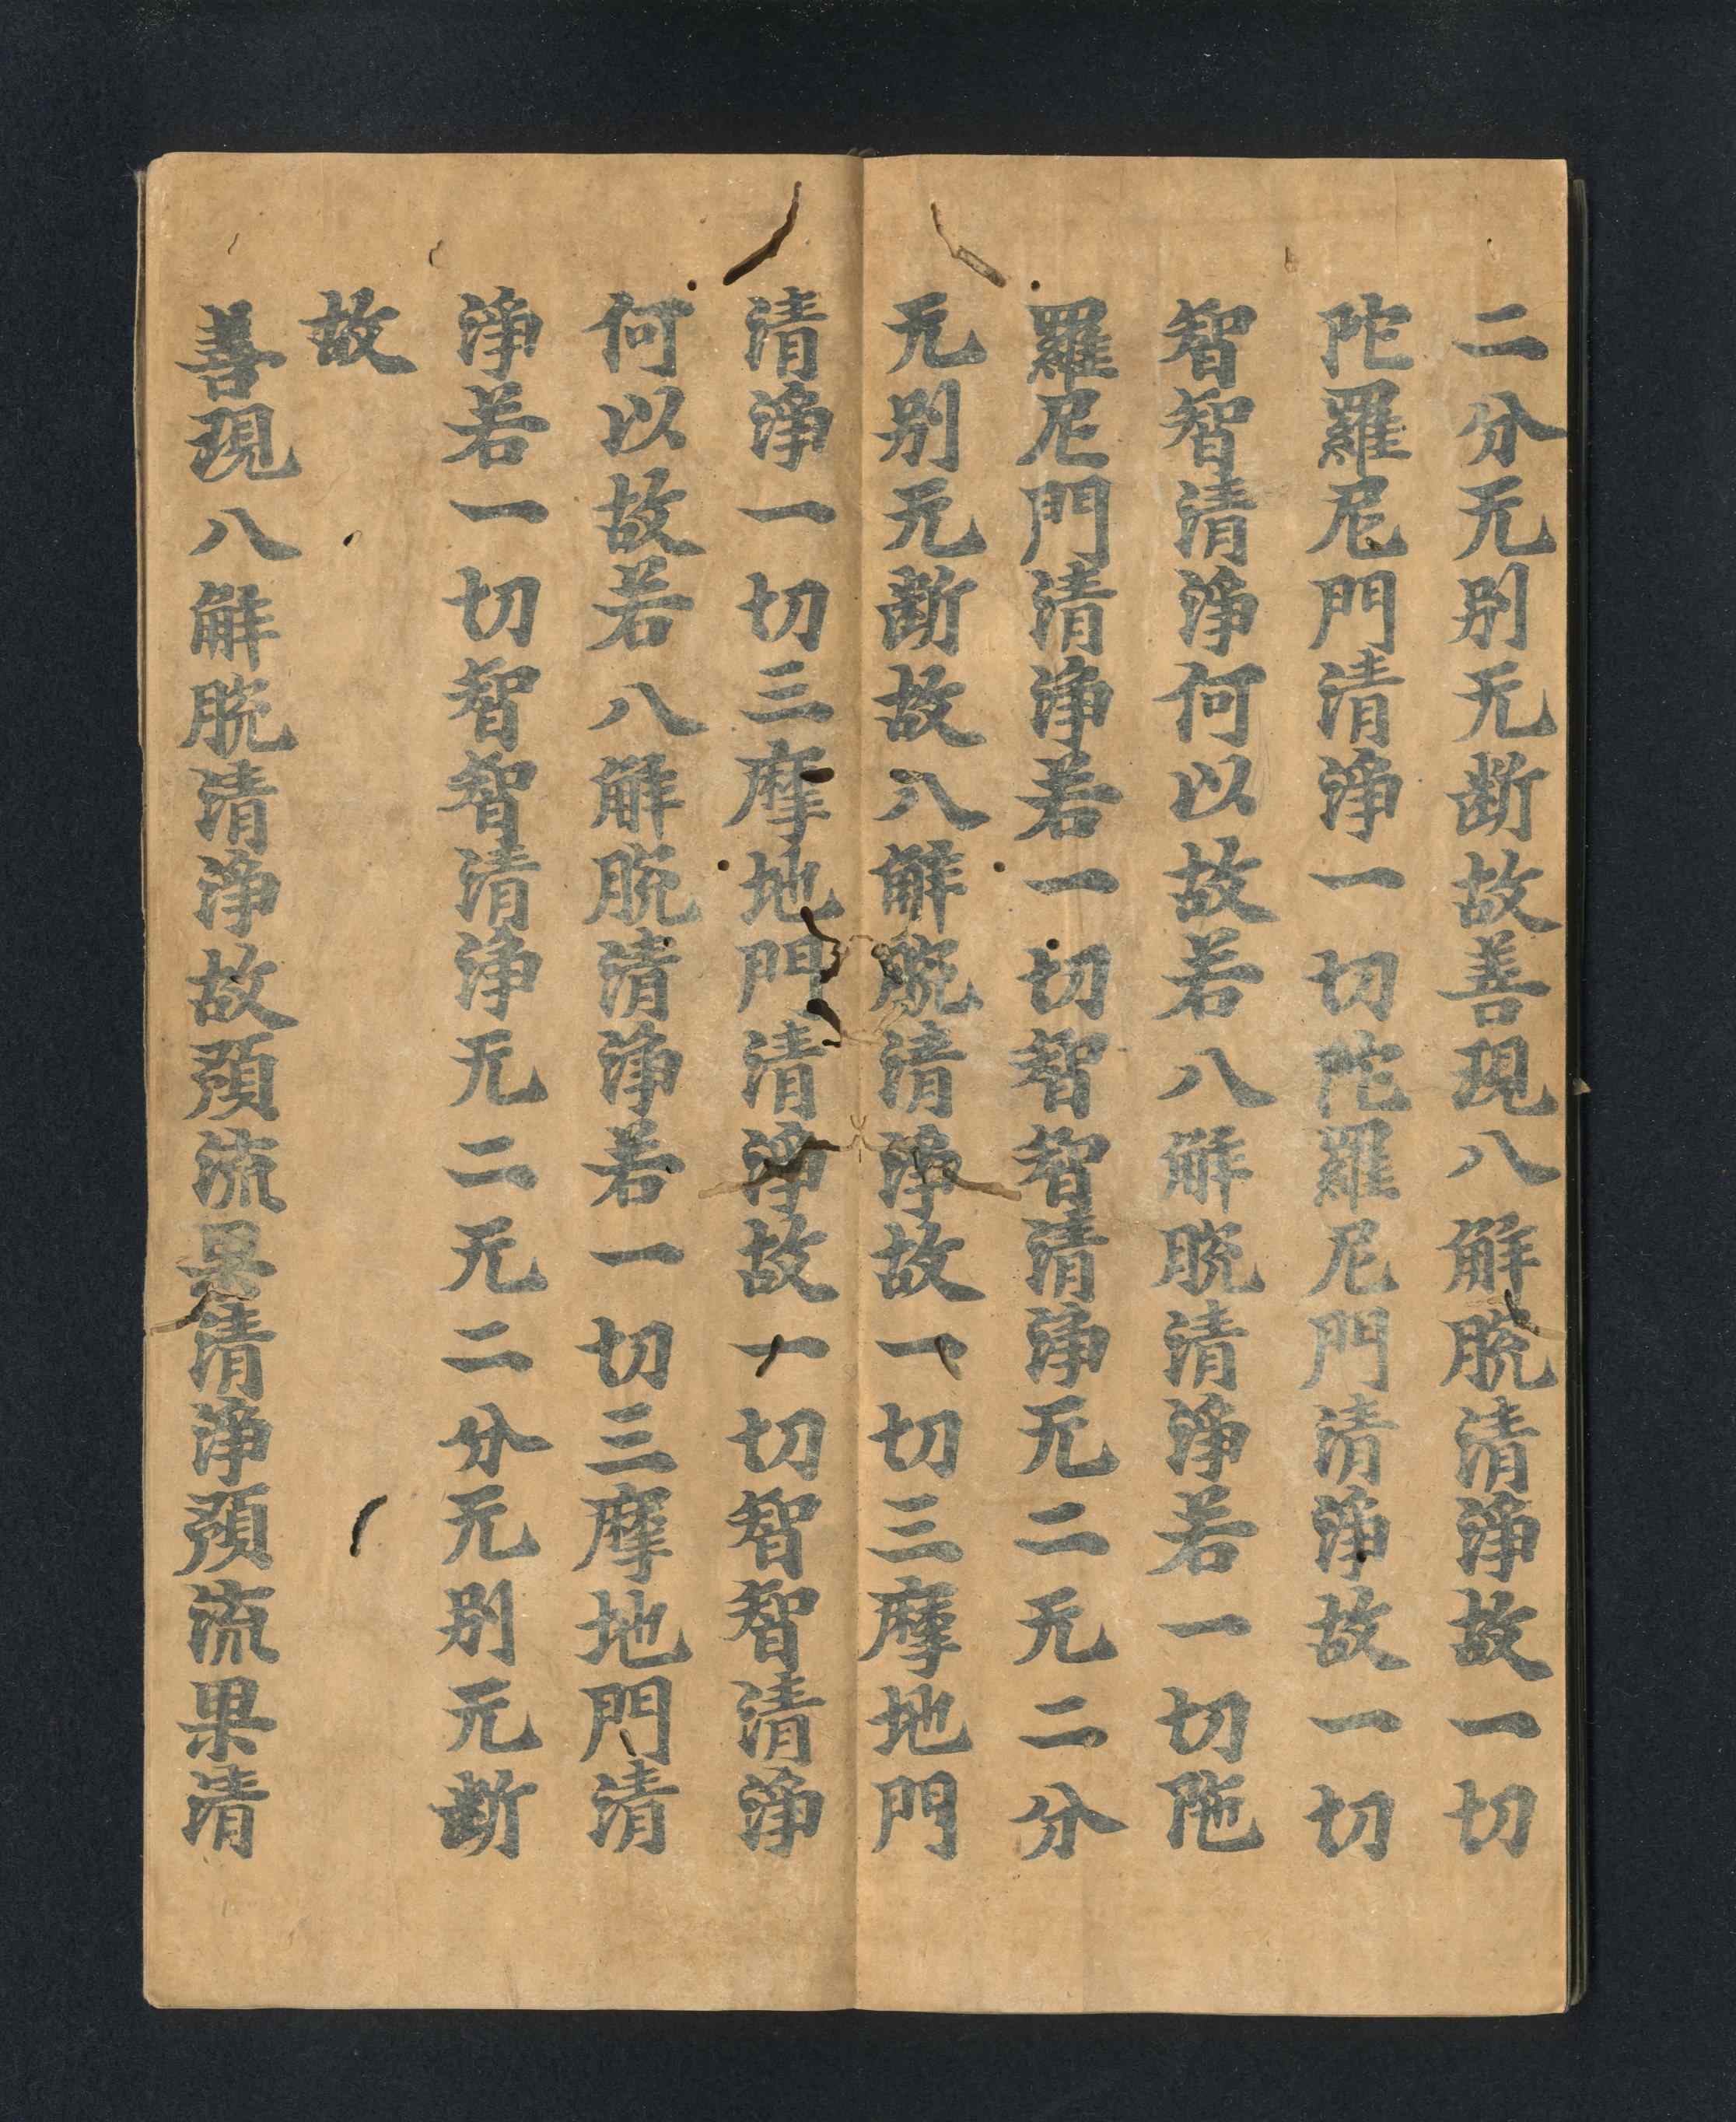 二分无別无断故善現八解脫清淨故一切
陀羅尼門清淨一切陀羅尼門清淨故一切
智智清淨何以故若八解脫清淨若一切陁
羅尼門清淨若一切智智清淨无二无二分
无別无断故八解脫清淨故一切三摩地門
清淨一切三摩地門清淨故一切智智清淨
何以故若八解脫清淨若一切三摩地門清
淨若一切智智清淨无二无二分无別无断
故
善現八解脫清淨故預流果清淨預流果清